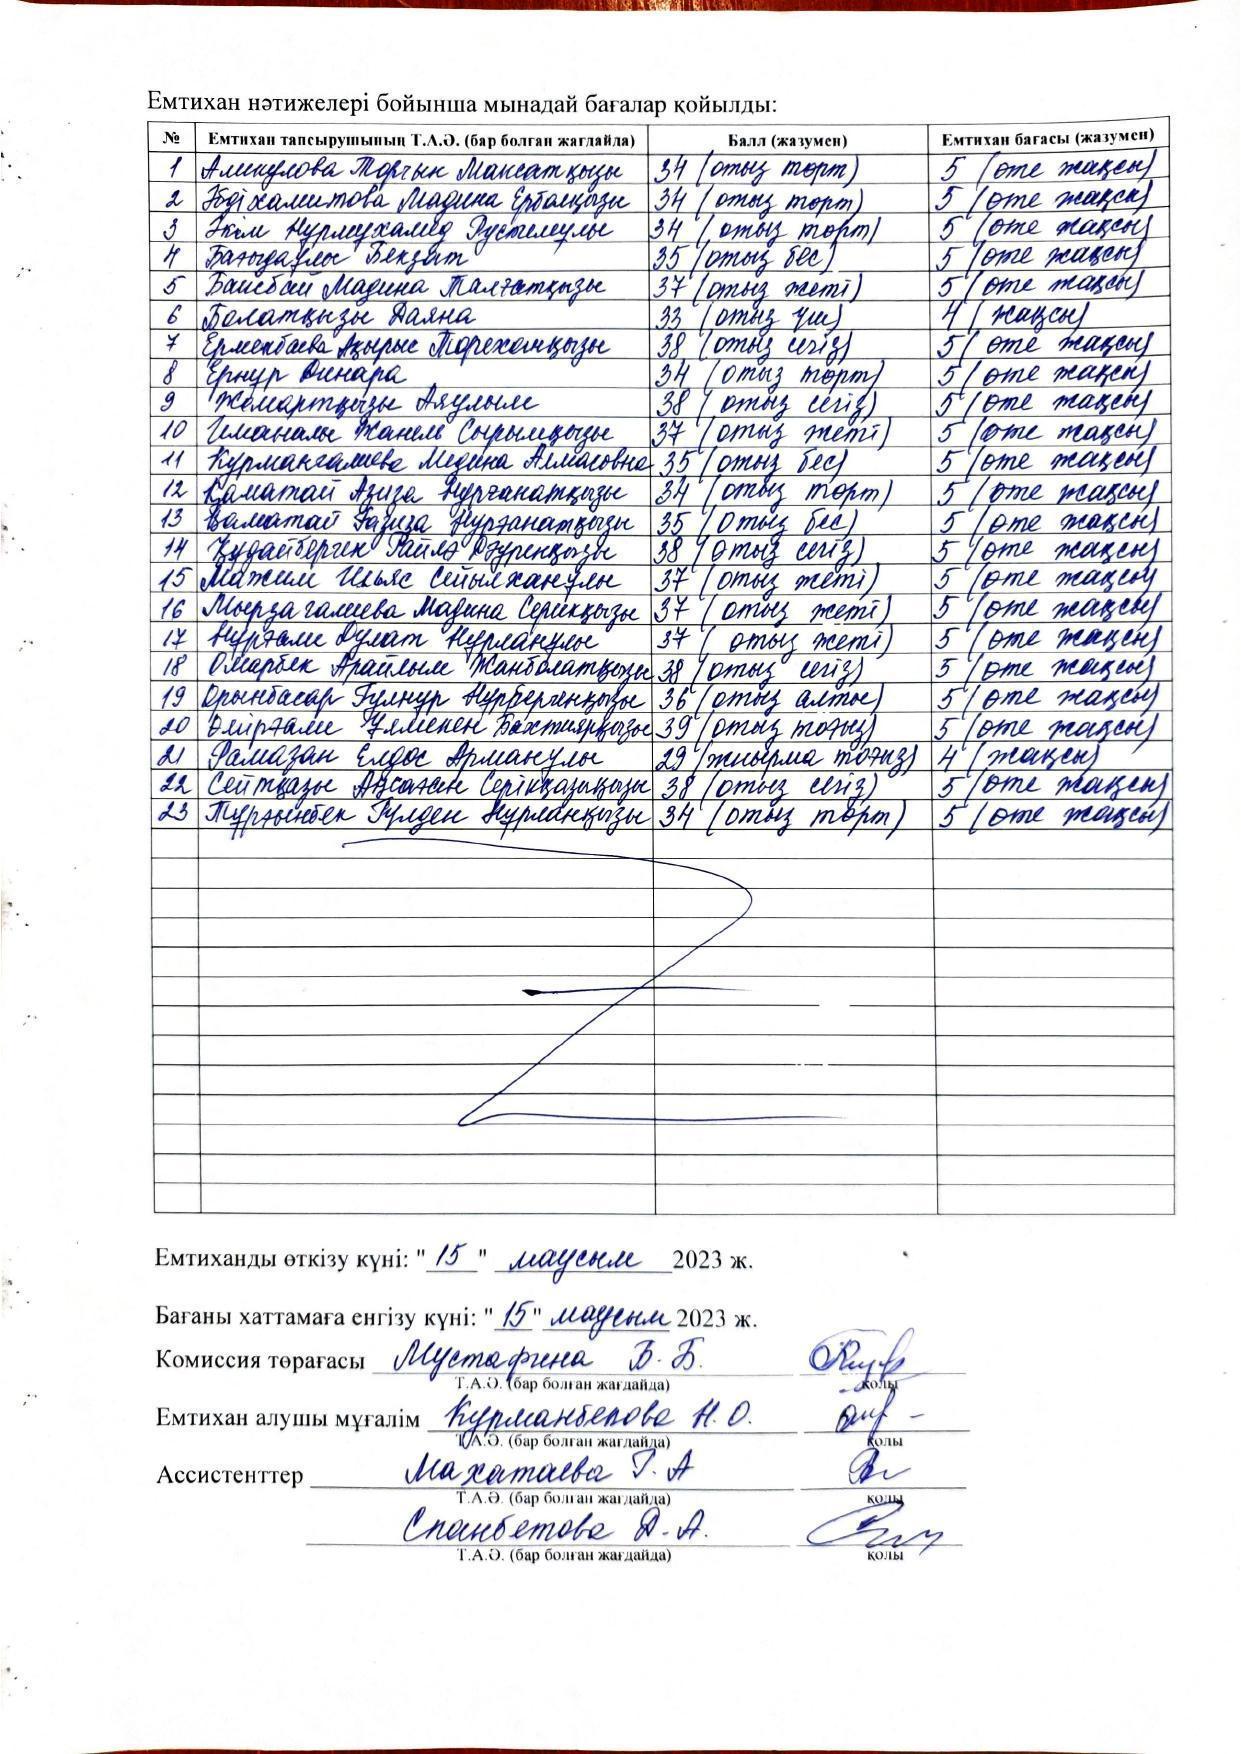 Емтихан нәтижелері бойынша мынадай бағалар қойылды:
№ Емтихан тапсырушының Т.А.Ә. (бар болған жағдайда) Балл (жазумен) Емтихан бағасы (жазумен)
1 Аликулова Торғын Мақсатқызы 34 (отыз төрт) 5 (өте жақсы)
2 Әбдіхамитова Мадина Ерболқызы 34 (отыз төрт) 5 (өте жақсы)
3 Әкім Нурмухамед Рустемулы 34 (отыз төрт) 5 (өте жақсы)
4 Бағыдаұлы Бекзат 35 (отыз бес) 5 (өте жақсы)
5 Баисбай Мадина Талғатқызы 37 (отыз жеті) 5 (өте жақсы)
6 Болатқызы Даяна 33 (отыз үш) 4 (жақсы)
7 Ерменбаева Ақырыс Төреханқызы 38 (отыз сегіз) 5 (өте жақсы)
8 Ернур Динара 34 (отыз төрт) 5 (өте жақсы)
9 Жомартқызы Аяулым 38 (отыз сегіз) 5 (өте жақсы)
10 Иманалы Жанель Сырымқызы 37 (отыз жеті) 5 (өте жақсы)
11 Курмангалиева Медина Алмасовна 35 (отыз бес) 5 (өте жақсы)
12 Қаматай Азиза Нұрғанатқызы 34 (отыз төрт) 5 (өте жақсы)
13 Қаматай Ғазиза Нұрғанатқызы 35 (отыз бес) 5 (өте жақсы)
14 Құдайберген Райлә Дәуренқызы 38 (отыз сегіз) 5 (өте жақсы)
15 Мажит Ильяс Сейылханұлы 37 (отыз жеті) 5 (өте жақсы)
16 Мырзагалиева Мадина Серикқызы 37 (отыз жеті) 5 (өте жақсы)
17 Нұрғали Дулат Нұрланұлы 37 (отыз жеті) 5 (өте жақсы)
18 Омарбек Арайлым Жанболатқызы 38 (отыз сегіз) 5 (өте жақсы)
19 Орынбасар Гулнур Нурбергенқызы 36 (отыз алты) 5 (өте жақсы)
20 Өмірғали Ұлмекен Бахтиярқызы 39 (отыз тоғыз) 5 (өте жақсы)
21 Рамазан Елдос Арманұлы 29 (жиырма тоғыз) 4 (жақсы)
22 Сейтқазы Ақсаған Серікқазықызы 38 (отыз сегіз) 5 (өте жақсы)
23 Тұрғынбек Гүлден Нұрланқызы 34 (отыз төрт) 5 (өте жақсы)
Емтиханды өткізу күні: "15" маусым 2023 ж.
Бағаны хаттамаға енгізу күні: "15" маусым 2023 ж.
Комиссия төрағасы Мустафина Б. Б.
Т.А.Ә. (бар болған жағдайда) қолы
Емтихан алушы мұғалім Курманбекова Н. О.
Т.А.Ә. (бар болған жағдайда) қолы
Ассистенттер Махатаева Г. А
Т.А.Ә. (бар болған жағдайда) қолы
Спанбетова Д. А.
Т.А.Ә. (бар болған жағдайда) қолы